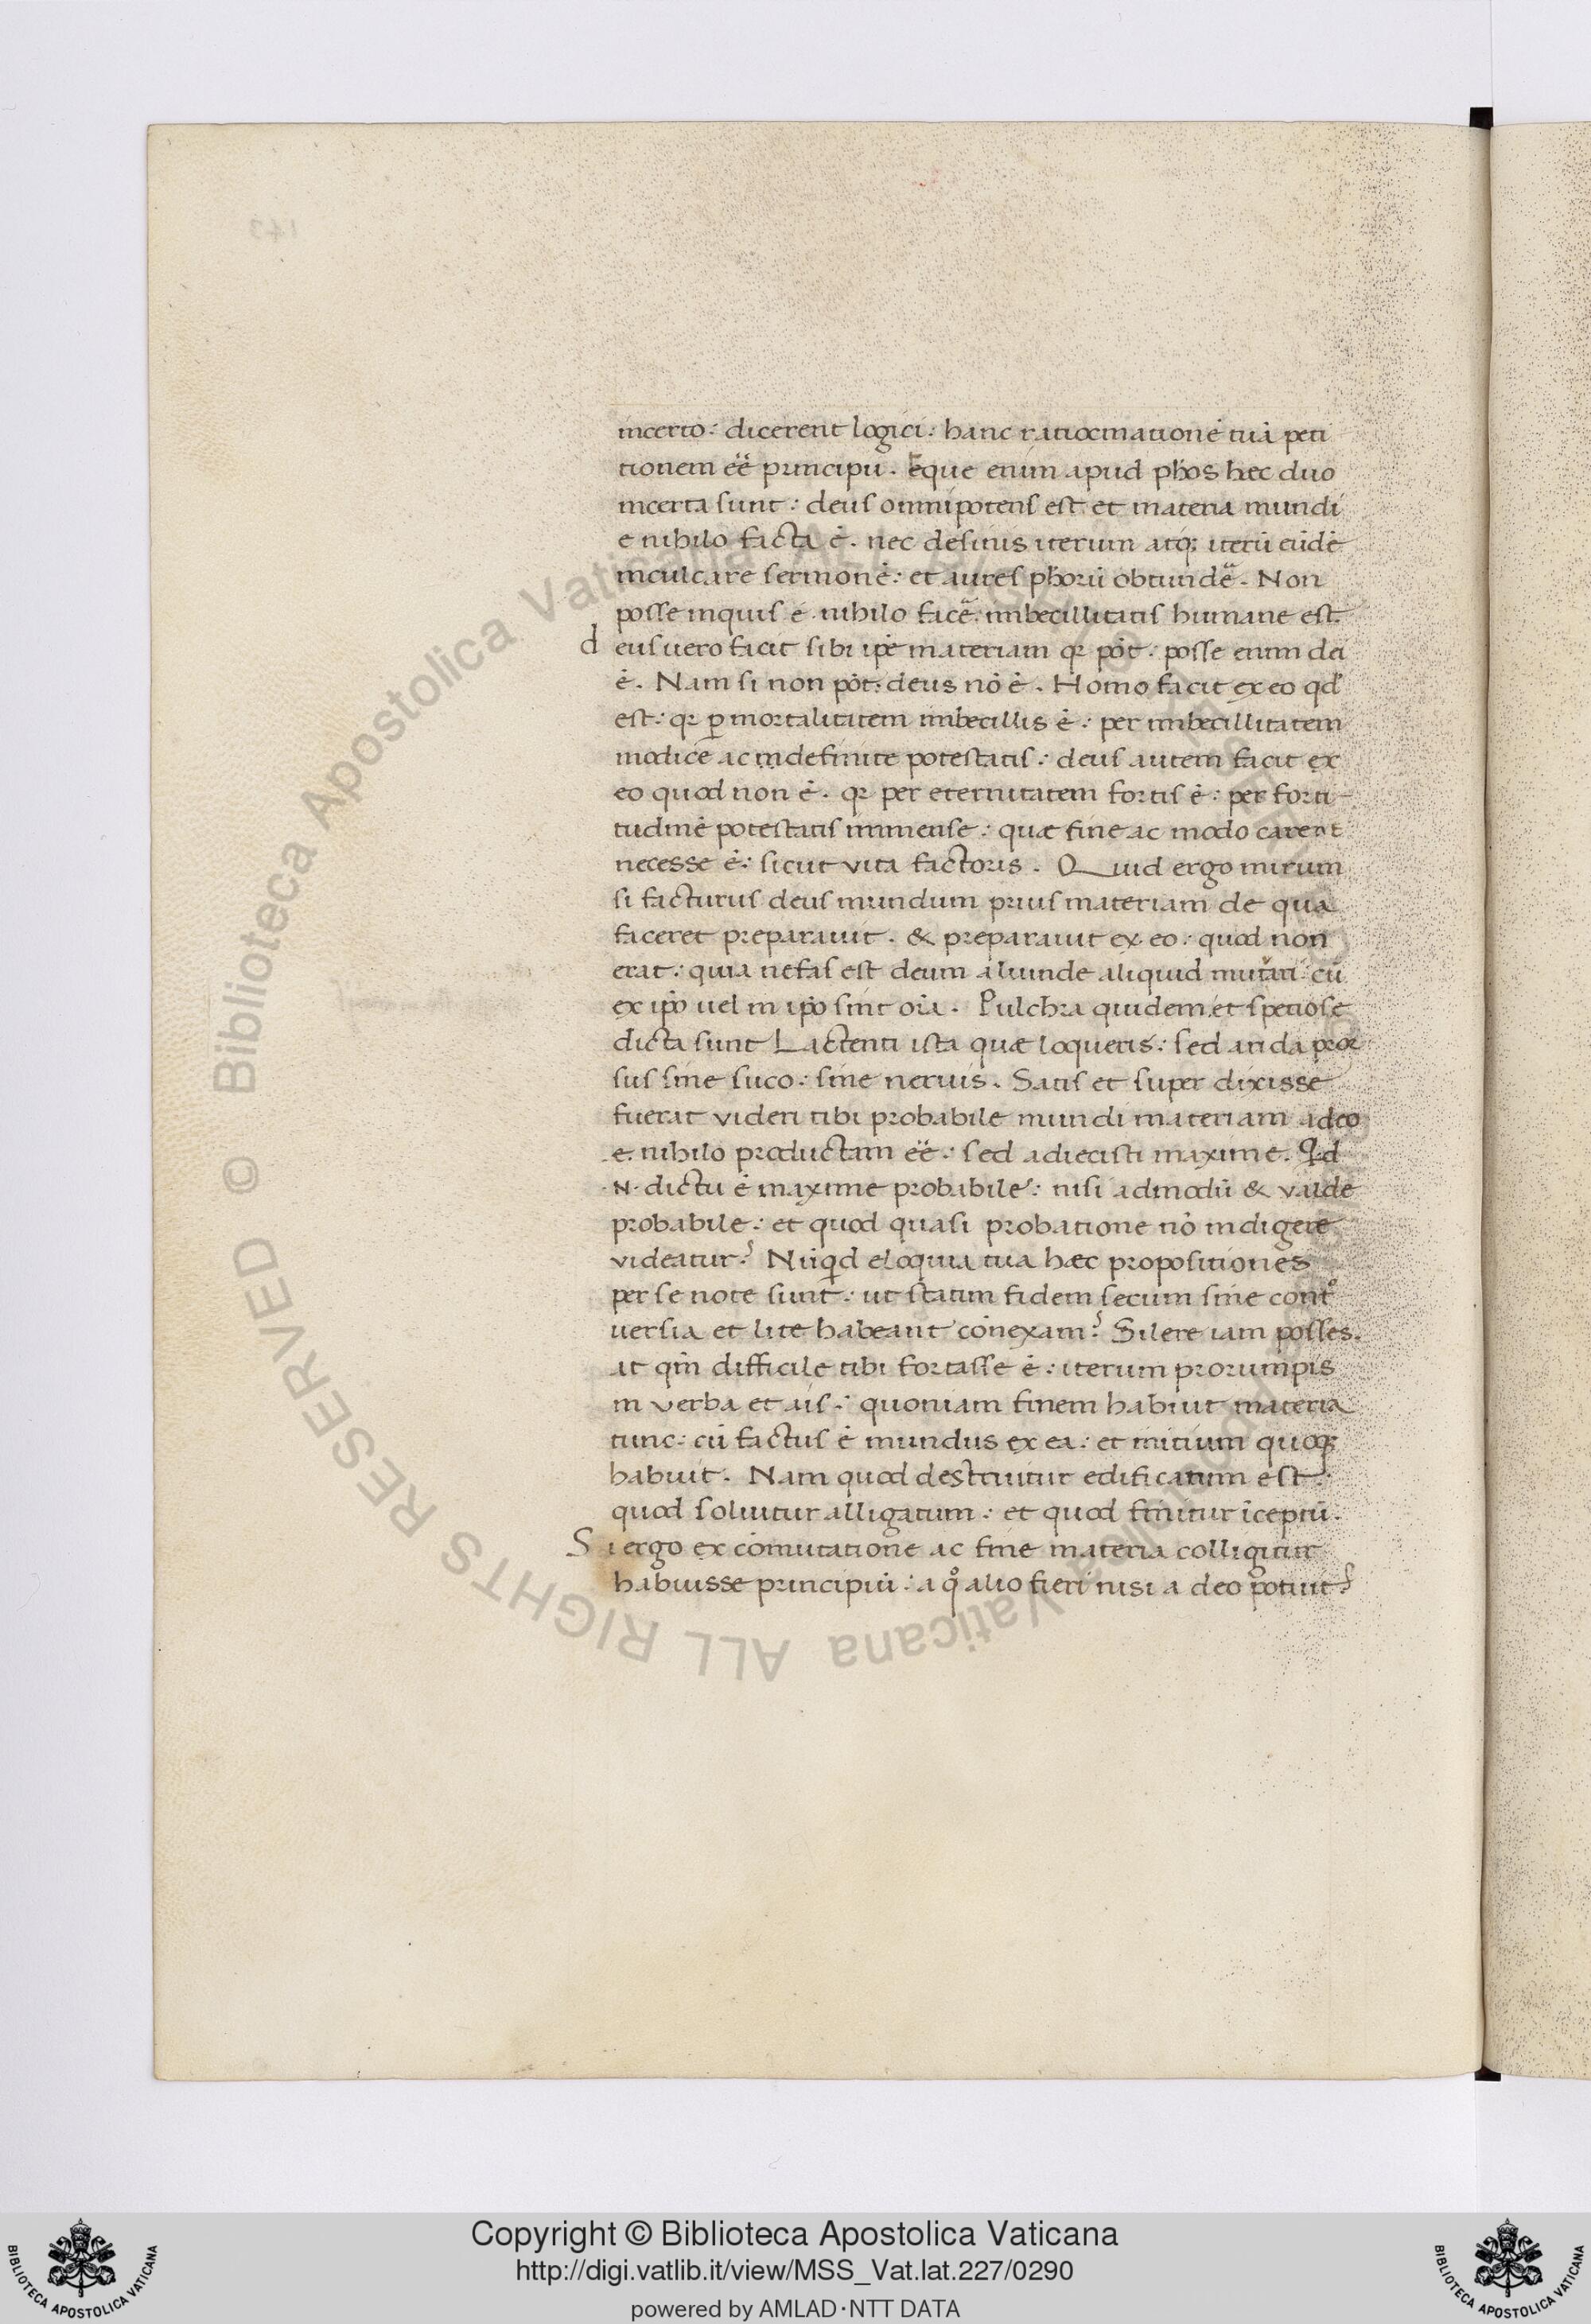 incerto: dicerent logici: hanc ratiocinationē tuā peti
tionem eē principii. Eque enim apud phos hec duo
incerta sunt: deus omnipotens est et materia mundi
e nihilo facta ē. nec desinis iterum atq; iterū eūdē
inculcare sermonē: et aures phorū obtundē. Non
posse inquis e nihilo facē. imbecillitatis humane est.
deus uero facit sibi ipē materiam qr pōt: posse enim dei
ē. Nam si non pōt: deus nō ē. Homo facit ex eo qd
est: qr ꝑ mortalitatem imbecillis ē: per imbecillitatem
modice ac indefinite potestatis: deus autem facit ex
eo quod non ē. qr per eternitatem fortis ē: per forti
tudinē potestatis immense: quæ fine ac modo carent
necesse ē: sicut vita factoris. Quid ergo mirum
si facturus deus mundum prius materiam de qua
faceret preparauit. & preparauit ex eo: quod non
erat: quia nefas est deum aliunde aliquid mutari: cū
ex ipō uel in ipō sint oīa. Pulchra quidem et spetiose
dicta sunt Lactenti ista quæ loqueris: sed arida pror
sus sine suco: sine neruis. Satis et super dixisse
fuerat videri tibi probabile mundi materiam a deo
e nihilo productam eē: sed adiecisti maxime. Qd
.N. dictu ē maxime probabile: nisi admodū & valde
probabile: et quod quasi probatione nō indigere
videatur? Nūqd eloquia tua hæc propositiones
per se note sunt: ut statim fidem secum sine contͦ
uersia et lite habeant cōnexam? Silere iam posses.
at qm̄ difficile tibi fortasse ē: iterum prorumpis
in verba et ais: quoniam finem habuit materia
tunc: cū factus ē mundus ex ea: et initium quoq;
habuit. Nam quod destruitur edificatum est:
quod soluitur alligatum: et quod finitur īceptū.
Si ergo ex cōmutatione ac fine materia colligitur
habuisse principiū: a qͦ alio fieri nisi a deo potuit?
Copyright © Biblioteca Apostolica Vaticana
http://digi.vatlib.it/view/MSS_Vat.lat.227/0290
powered by AMLAD·NTT DATA
BIBLIOTECA APOSTOLICA VATICANA
BIBLIOTECA APOSTOLICA VATICANA
© Biblioteca Apostolica Vaticana ALL RIGHTS RESERVED